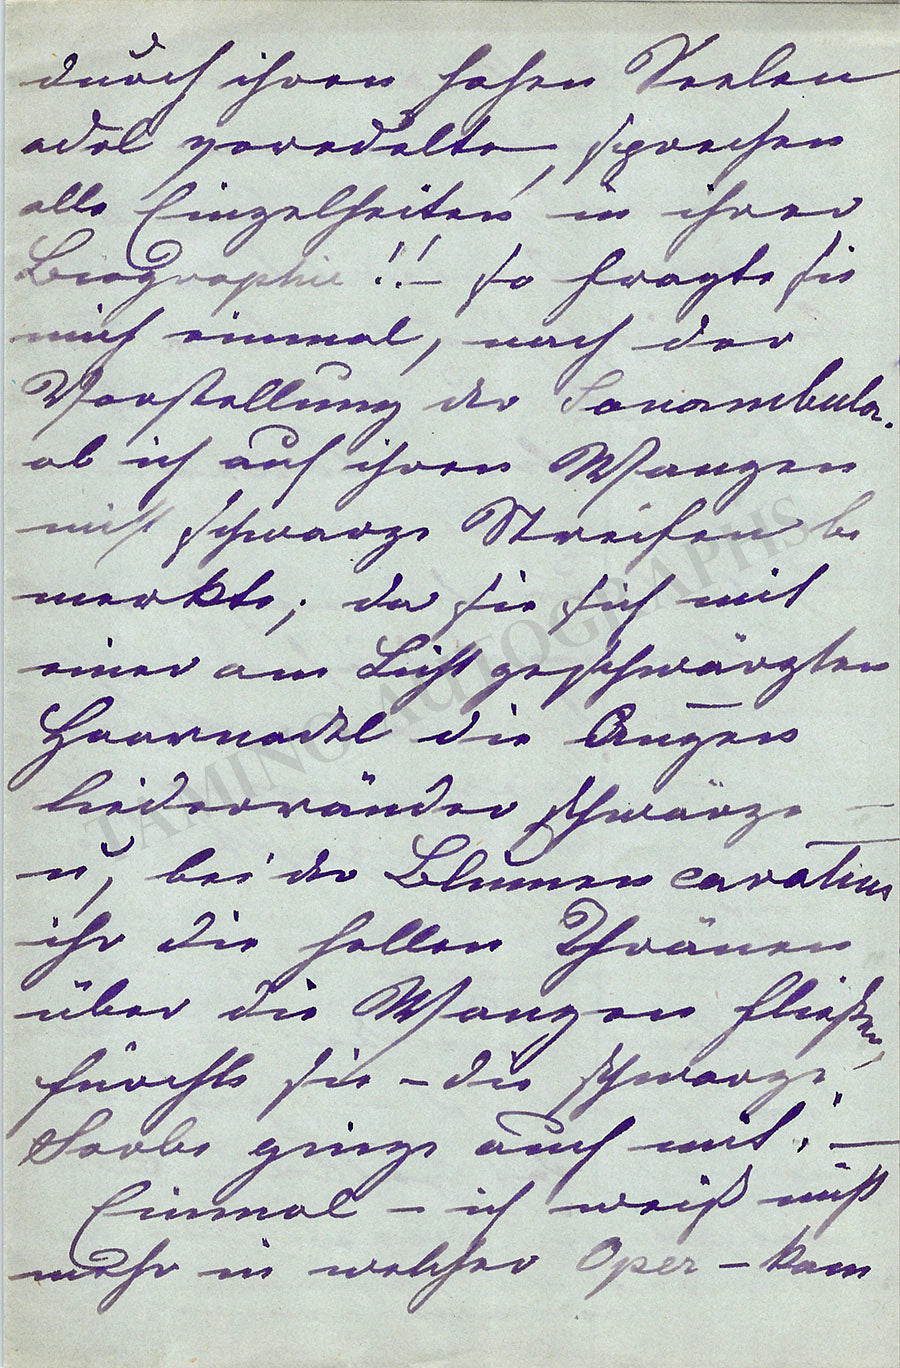 durch ihren hohen Seelen
adel veredelte, sprechen
alle Einzelheiten in ihrer
Biographie!! – so fragte sie
mich einmal, nach der
Vorstellung der Sonambula.
ob ich auf ihren Wangen
nicht schwarze Streifen be
merkte; da sie sich mit
einer am Licht geschwärzten
Haarnadel die Augen
liederränder schwärze –
u, bei der Blumencavatine
ihr die hellen Thränen
über die Wangen fließen,
fürchte sie – die schwarze
Farbe ginge auch mit! –
Einmal – ich weiß nicht
mehr in welcher Oper – kam
TAMINO AUTOGRAPHS